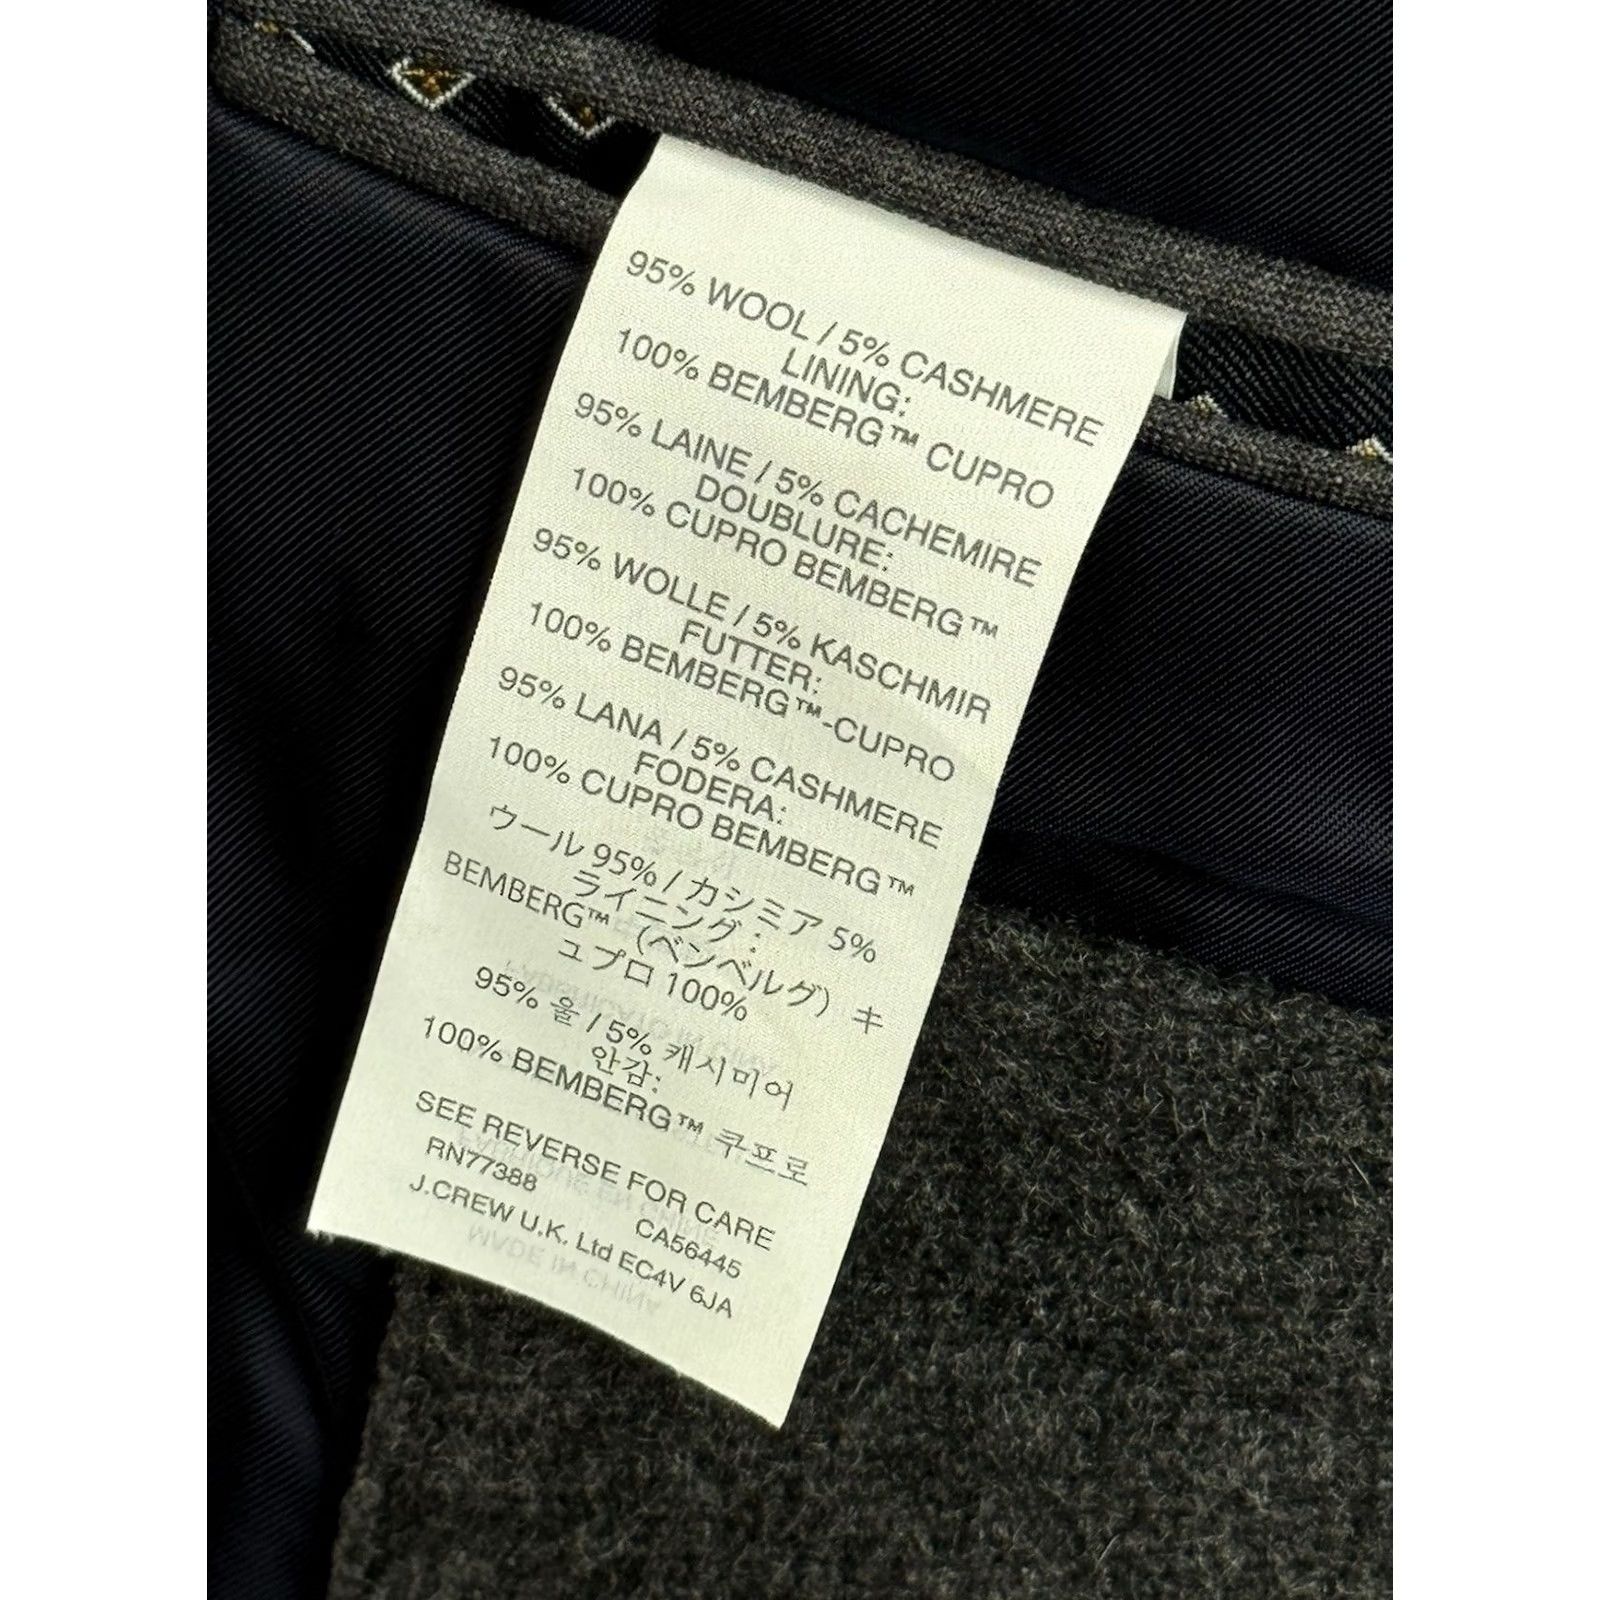 95% WOOL / 5% CASHMERE
LINING:
100% BEMBERG™ CUPRO
95% LAINE / 5% CACHEMIRE
DOUBLURE:
100% CUPRO BEMBERG™
95% WOLLE / 5% KASCHMIR
FUTTER:
100% BEMBERG™-CUPRO
95% LANA / 5% CASHMERE
FODERA:
100% CUPRO BEMBERG™
ウール 95% / カシミア 5%
ライニング :
BEMBERG™（ベンベルグ）キ
ュプロ 100%
95% 울 / 5% 캐시미어
안감:
100% BEMBERG™ 쿠프로
SEE REVERSE FOR CARE
RN77388 CA56445
J.CREW U.K. Ltd EC4V 6JA
MADE IN CHINA